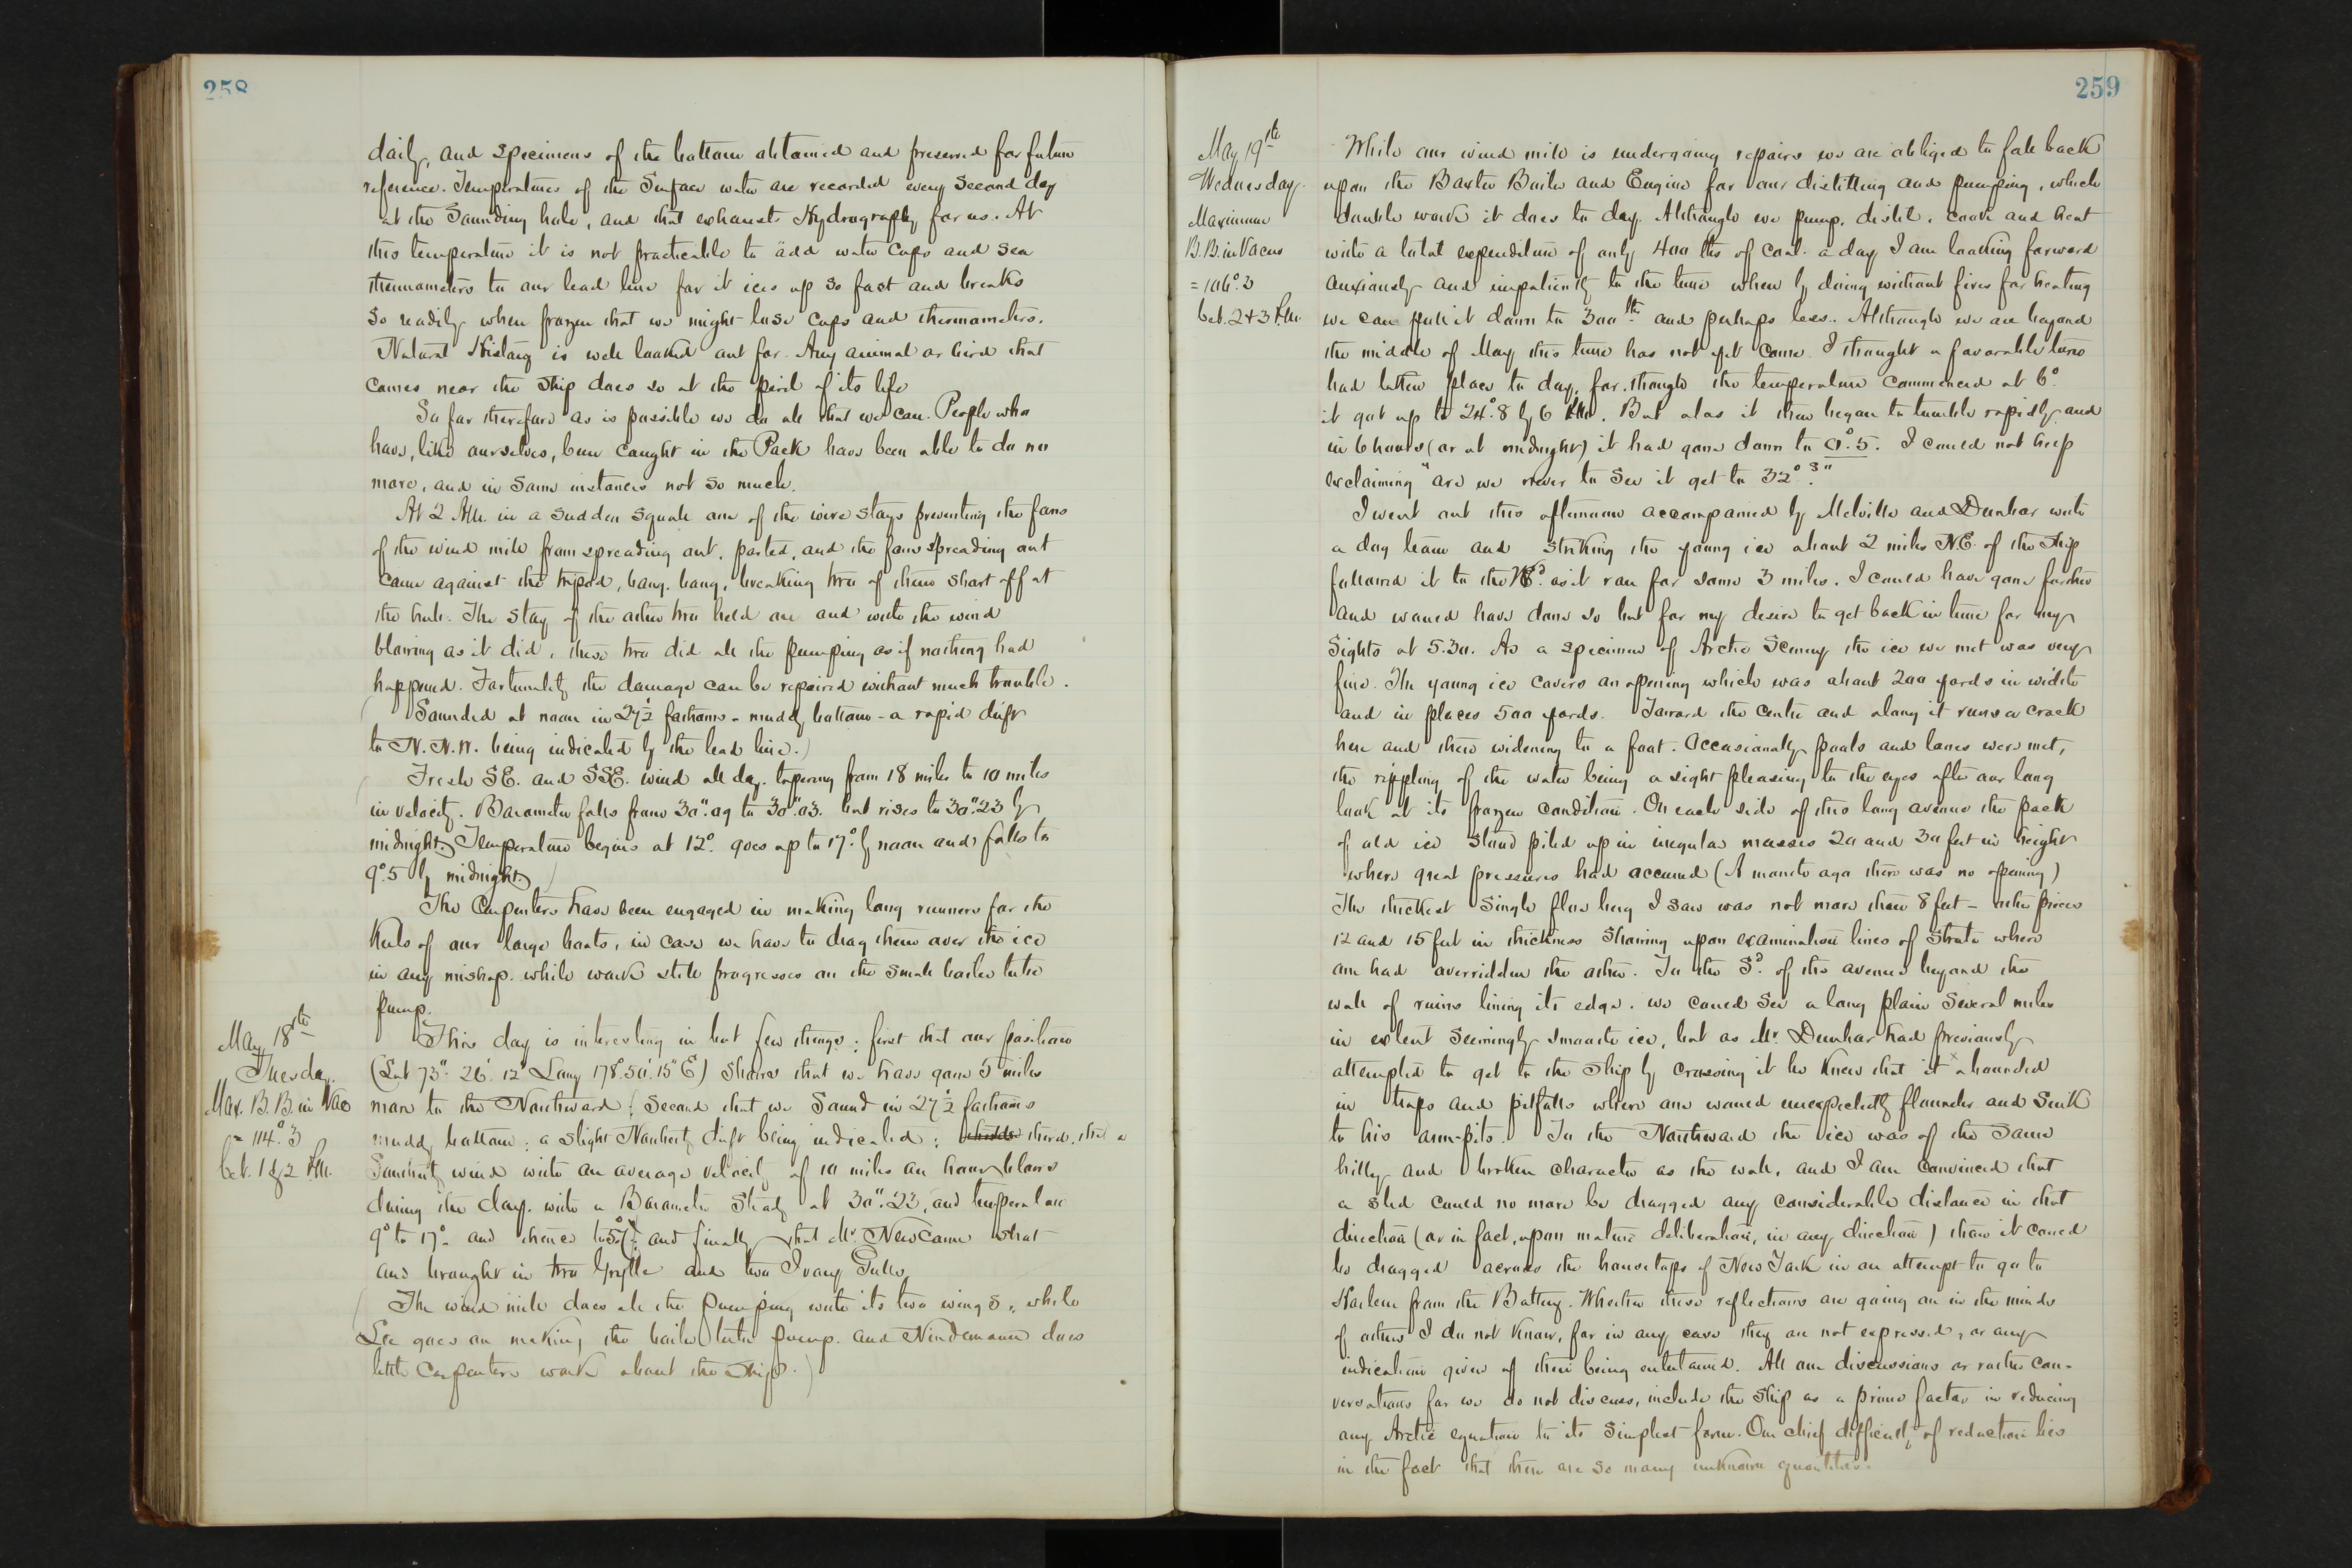 258
daily, and specimens of the bottom obtained and preserved for future
reference. Temperatures of the Surface water are recorded every second day
at the Sounding hole, and that exhausts Hydrography for us. At
this temperature it is not practicable to add water cups and sea
thermometers to our lead line for it ices up so fast and breaks
so readily when frozen that we might lose cups and thermometers.
Natural History is well looked out for. Any animal or bird that
comes near the ship does so at the peril of its life
So far therefore as is possible we do all that we can. People who
have, like ourselves, been caught in the Pack have been able to do no
more, and in some instances not so much.
At 2 A.M. in a sudden squall one of the wire stays preventing the fans
of the wind mill from spreading out, parted, and the fans spreading out
came against the tripod, bang, bang, breaking two of them short off at
the hub. The stay of the other two held on and with the wind
blowing as it did, these two did all the pumping as if nothing had
happened. Fortunately the damage can be repaired without much trouble.
(Sounded at noon in 27½ fathoms - muddy bottom - a rapid drift
to N.N.W. being indicated by the lead line.)
(Fresh SE. and SSE. wind all day, tapering from 18 miles to 10 miles
in velocity. Barometer falls from 30".09 to 30".03. but rises to 30".23 by
midnight. Temperature begins at 12°. goes up to 17°. by noon and falls to
9°.5 by midnight.)
The Carpenters have been engaged in making long runners for the
keels of our large boats, in case we have to drag them over the ice
in any mishap. while work still progresses on the small boiler tube
pump.
May 18th
Tuesday.
Max. B.B. in Vac
= 114°.3
bet. 1 & 2 P.M.
This day is interesting in but few things; first that our position
(Lat 73°. 26'. 12" Long 178°.50'.15" E) shows that we have gone 5 miles
more to the Northward; Second that we Sound in 27½ fathoms
muddy bottom; a slight Northerly drift being indicated; third, that a
Southerly wind with an average velocity of 10 miles an hour blows
during the day. with a Barometer Steady at 30".23, and temperature
9° to 17°. and thence to 5°.7; and finally that Mr. Newcomb shot
and brought in two Grylle and two Ivory Gulls,
(The wind mill does all the pumping with its two wings, while
Lee goes on making the boiler tube pump. and Nindemann does
little Carpenters work about the Ship.)
259
May 19th
Wednesday.
Maximum
B.B. in Vacuo
= 106°.3
bet. 2 & 3 P.M.
While our wind mill is undergoing repairs we are obliged to fall back
upon the Baxter Boiler and Engine for our distilling and pumping, which
double work it does to day. Although we pump, distil, cook and heat
with a total expenditure of only 400 lbs of coal. a day I am looking forward
anxiously and impatiently to the time when by doing without fires for heating
we can pull it down to 300 lbs and perhaps less. Although we are beyond
the middle of May this time has not yet come. I thought a favorable turn
had taken place to day, for though the temperature commenced at 6°.
it got up to 24°.8 by 6 P.M. But alas it then began to tumble rapidly and
in 6 hours (or at midnight) it had gone down to 0°.5. I could not help
exclaiming "are we never to see it get to 32°?"
I went out this afternoon accompanied by Melville and Dunbar with
a dog team and striking the young ice about 2 miles N.E. of the ship
followed it to the as it ran for some 3 miles. I could have gone farther
and would have done so but for my desire to get back in time for my
Sights at 5.30. As a specimen of Arctic Scenery the ice we met was very
fine. The young ice covers an opening which was about 200 yards in width
and in places 500 yards. Toward the centre and along it runs a crack
here and there widening to a foot. Occasionally pools and lanes were met,
the rippling of the water being a sight pleasing to the eyes after our long
look at its frozen condition. On each side of this long avenue the pack
of old ice stand piled up in irregular masses 20 and 30 feet in height
where great pressures had occurred (A month ago there was no opening)
The thickest Single floe berg I saw was not more than 8 feet - other pieces
12 and 15 feet in thickness Showing upon examination lines of strata where
one had overridden the other. To the Sd. of the avenue beyond the
wall of ruins lining its edge, we could see a long plain several miles
in extent seemingly smooth ice, but as Mr. Dunbar had previously
attempted to get to the ship by crossing it he knew that it abounded
in traps and pitfalls where one would unexpectedly flounder and Sink
to his arm-pits. To the Northward the ice was of the same
hilly and broken character as the wall, and I am convinced that
a sled could no more be dragged any considerable distance in that
direction (or in fact, upon mature deliberation, in any direction) than it could
be dragged across the housetops of New York in an attempt to go to
Harlem from the Battery. Whether these reflections are going on in the minds
of others I do not know, for in any case they are not expressed, or any
indication given of their being entertained. All our discussions or rather con-
versations for we do not discuss, include the ship as a prime factor in reducing
any Arctic equation to its simplest form. Our chief difficulty of reduction lies
in the fact that there are so many unknown quantities.